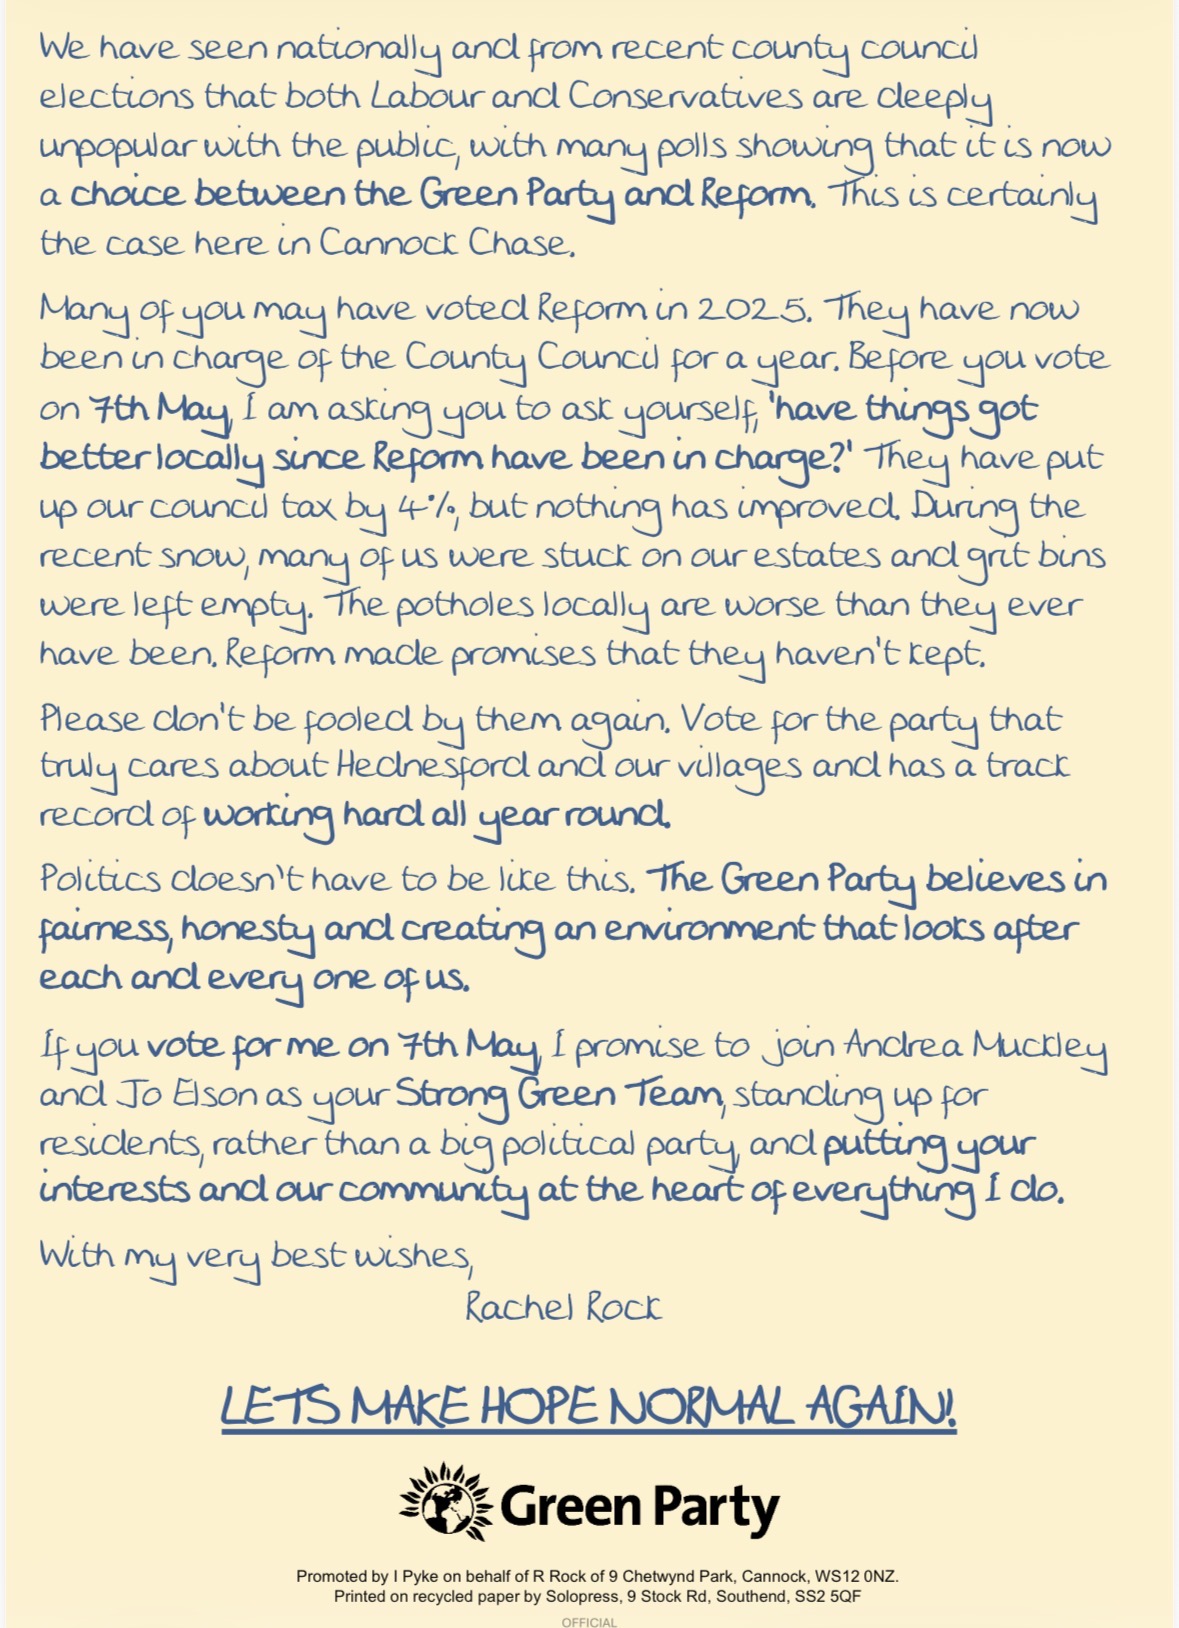 We have seen nationally and from recent county council
elections that both Labour and Conservatives are deeply
unpopular with the public, with many polls showing that it is now
a choice between the Green Party and Reform. This is certainly
the case here in Cannock Chase.
Many of you may have voted Reform in 2025. They have now
been in charge of the County Council for a year. Before you vote
on 7th May, I am asking you to ask yourself, 'have things got
better locally since Reform have been in charge?' They have put
up our council tax by 4%, but nothing has improved. During the
recent snow, many of us were stuck on our estates and grit bins
were left empty. The potholes locally are worse than they ever
have been. Reform made promises that they haven't kept.
Please don't be fooled by them again. Vote for the party that
truly cares about Hednesford and our villages and has a track
record of working hard all year round.
Politics doesn't have to be like this. The Green Party believes in
fairness, honesty and creating an environment that looks after
each and every one of us.
If you vote for me on 7th May, I promise to join Andrea Muckley
and Jo Elson as your Strong Green Team, standing up for
residents, rather than a big political party, and putting your
interests and our community at the heart of everything I do.
With my very best wishes,
Rachel Rock
LETS MAKE HOPE NORMAL AGAIN!
Green Party
Promoted by I Pyke on behalf of R Rock of 9 Chetwynd Park, Cannock, WS12 0NZ.
Printed on recycled paper by Solopress, 9 Stock Rd, Southend, SS2 5QF
OFFICIAL